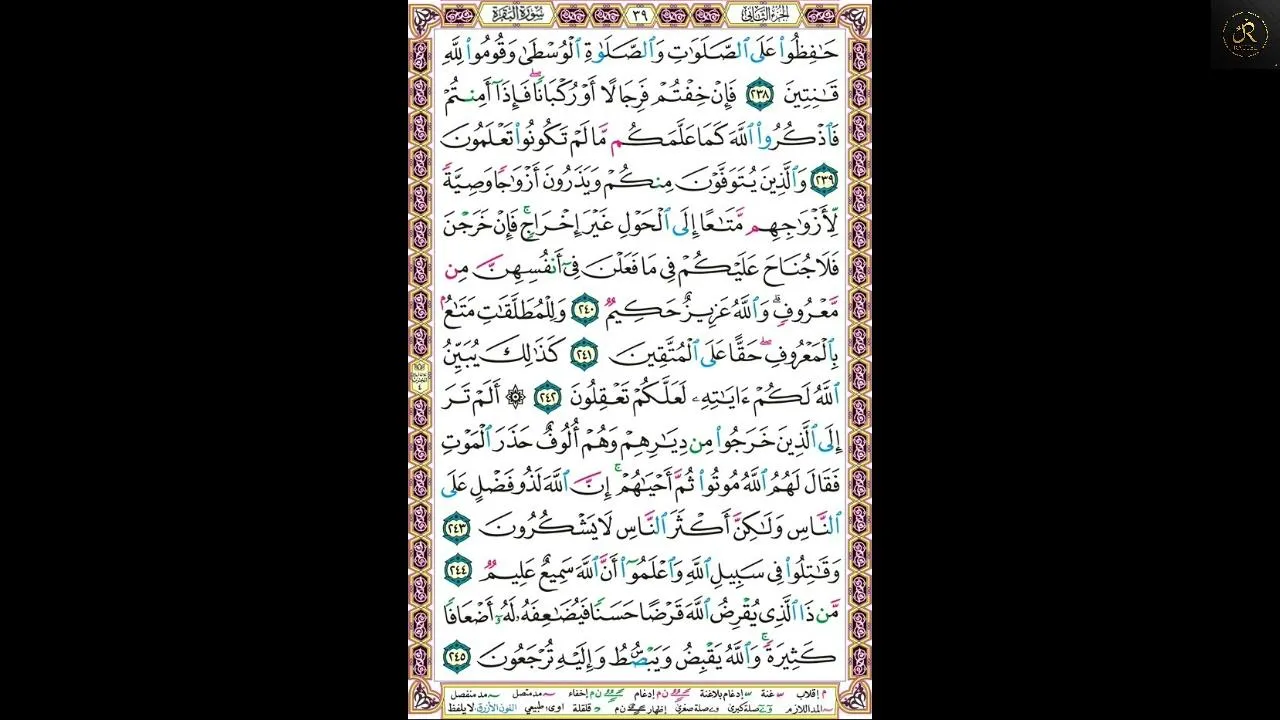 الجزء الثاني
٣٩
سورة البقرة
حَٰفِظُوا۟ عَلَى ٱلصَّلَوَٰتِ وَٱلصَّلَوٰةِ ٱلْوُسْطَىٰ وَقُومُوا۟ لِلَّهِ
قَٰنِتِينَ ٢٣٨ فَإِنْ خِفْتُمْ فَرِجَالًا أَوْ رُكْبَانًا ۖ فَإِذَآ أَمِنتُمْ
فَٱذْكُرُوا۟ ٱللَّهَ كَمَا عَلَّمَكُم مَّا لَمْ تَكُونُوا۟ تَعْلَمُونَ
٢٣٩ وَٱلَّذِينَ يُتَوَفَّوْنَ مِنكُمْ وَيَذَرُونَ أَزْوَٰجًا وَصِيَّةً
لِّأَزْوَٰجِهِم مَّتَٰعًا إِلَى ٱلْحَوْلِ غَيْرَ إِخْرَاجٍ ۚ فَإِنْ خَرَجْنَ
فَلَا جُنَاحَ عَلَيْكُمْ فِى مَا فَعَلْنَ فِىٓ أَنفُسِهِنَّ مِن
مَّعْرُوفٍ ۗ وَٱللَّهُ عَزِيزٌ حَكِيمٌ ٢٤٠ وَلِلْمُطَلَّقَٰتِ مَتَٰعٌۢ
بِٱلْمَعْرُوفِ ۖ حَقًّا عَلَى ٱلْمُتَّقِينَ ٢٤١ كَذَٰلِكَ يُبَيِّنُ
ٱللَّهُ لَكُمْ ءَايَٰتِهِۦ لَعَلَّكُمْ تَعْقِلُونَ ٢٤٢ ۞ أَلَمْ تَرَ
إِلَى ٱلَّذِينَ خَرَجُوا۟ مِن دِيَٰرِهِمْ وَهُمْ أُلُوفٌ حَذَرَ ٱلْمَوْتِ
فَقَالَ لَهُمُ ٱللَّهُ مُوتُوا۟ ثُمَّ أَحْيَٰهُمْ ۚ إِنَّ ٱللَّهَ لَذُو فَضْلٍ عَلَى
ٱلنَّاسِ وَلَٰكِنَّ أَكْثَرَ ٱلنَّاسِ لَا يَشْكُرُونَ ٢٤٣
وَقَٰتِلُوا۟ فِى سَبِيلِ ٱللَّهِ وَٱعْلَمُوٓا۟ أَنَّ ٱللَّهَ سَمِيعٌ عَلِيمٌ ٢٤٤
مَّن ذَا ٱلَّذِى يُقْرِضُ ٱللَّهَ قَرْضًا حَسَنًا فَيُضَٰعِفَهُۥ لَهُۥٓ أَضْعَافًا
كَثِيرَةً ۚ وَٱللَّهُ يَقْبِضُ وَيَبْصُۜطُ وَإِلَيْهِ تُرْجَعُونَ ٢٤٥
م إقلاب غنة إدغام بلاغنة ن م إدغام ن م إخفاء مد متصل مد منفصل
المد اللازم صلة كبرى صلة صغرى إظهار ن م قلقلة اوى طبيعي اللون الأزرق لا يلفظ